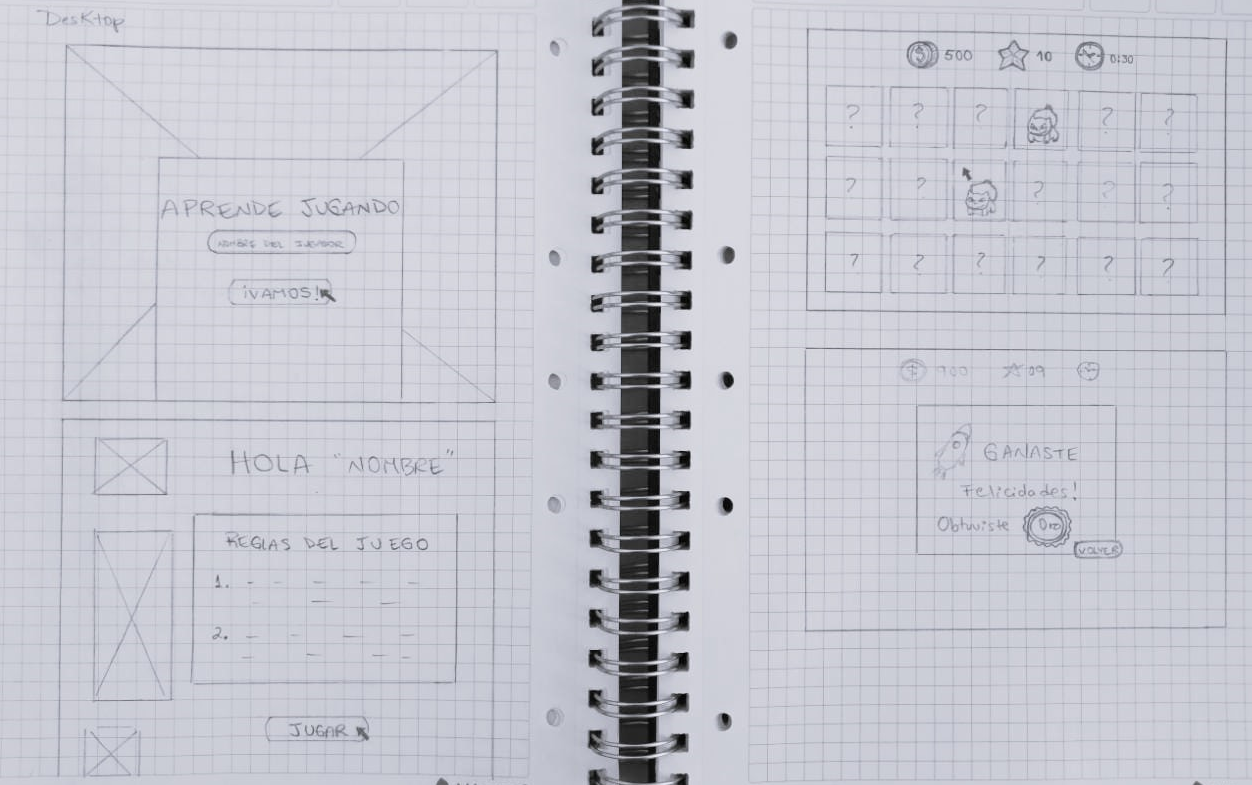 Desktop
APRENDE JUGANDO
NOMBRE DEL JUGADOR
¡VAMOS!
HOLA "NOMBRE"
REGLAS DEL JUEGO
1.
2.
JUGAR
$ 500 10 0:30
? ? ? ? ?
? ? ? ? ?
? ? ? ? ? ?
$ 900 09
GANASTE
Felicidades!
Obtuviste Oro
VOLVER